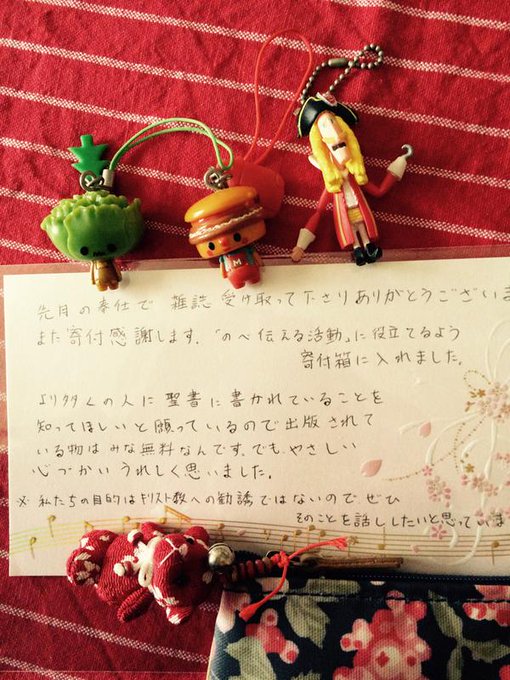 先月の奉仕で 雑誌 受け取って下さりありがとうございま
また寄付感謝します.「のべ伝える活動」に役立てるよう
寄付箱に入れました.
より多くの人に聖書に書かれていることを
知ってほしいと願っているので出版されて
いる物はみな無料なんです.でも、やさしい
心づかいうれしく思いました.
※ 私たちの目的はキリスト教への勧誘ではないので、ぜひ
そのことを話ししたいと思っています
M